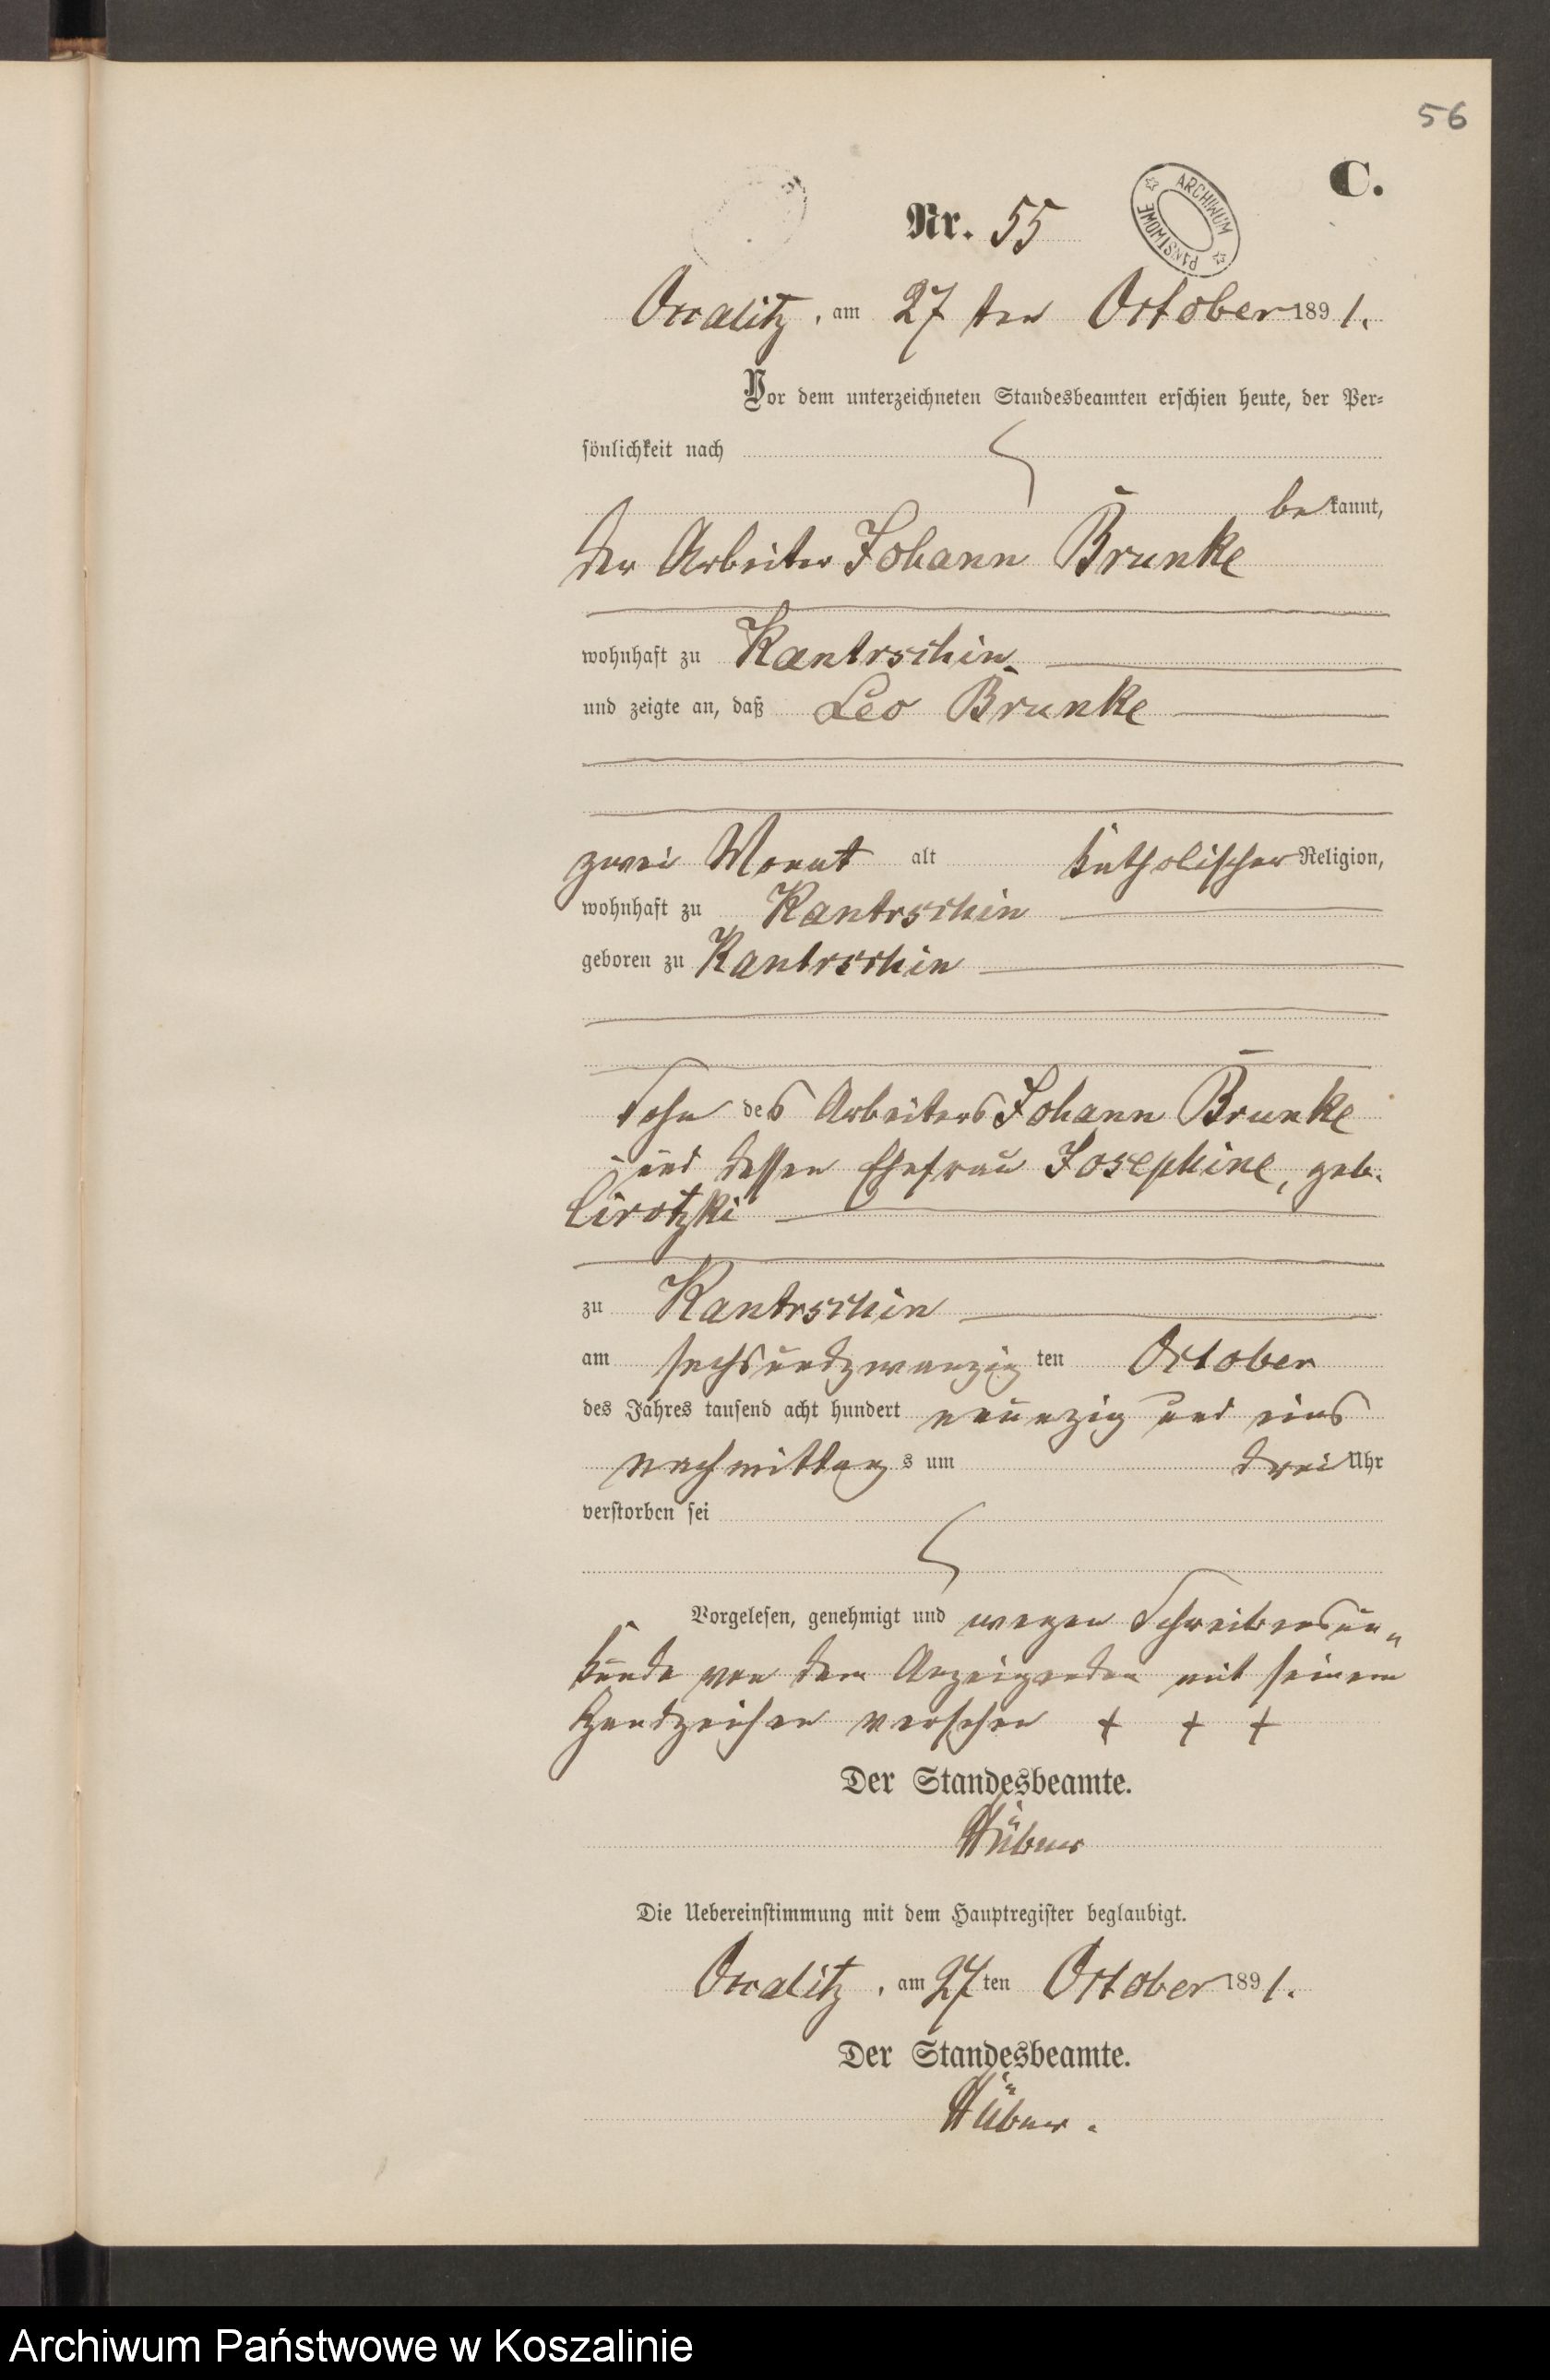 56
C.
ARCHIWUM PAŃSTWOWE
Nr. 55
Occalitz, am 27 ten October 1891.
Vor dem unterzeichneten Standesbeamten erschien heute, der Per-
sönlichkeit nach
bekannt,
der Arbeiter Johann Brunke
wohnhaft zu Kantrschin
und zeigte an, daß Leo Brunke
zwei Monat alt katholischer Religion,
wohnhaft zu Kantrschin
geboren zu Kantrschin
Sohn des Arbeiters Johann Brunke
und dessen Ehefrau Josephine, geb.
Cirotzki
zu Kantrschin
am sechsundzwanzig ten October
des Jahres tausend acht hundert neunzig und eins
nachmittags um drei Uhr
verstorben sei
Vorgelesen, genehmigt und wegen Schreibensun-
kunde von dem Anzeigenden mit seinem
Handzeichen versehen + + +
Der Standesbeamte.
Hübner
Die Uebereinstimmung mit dem Hauptregister beglaubigt.
Occalitz, am 27 ten October 1891.
Der Standesbeamte.
Hübner.
Archiwum Państwowe w Koszalinie